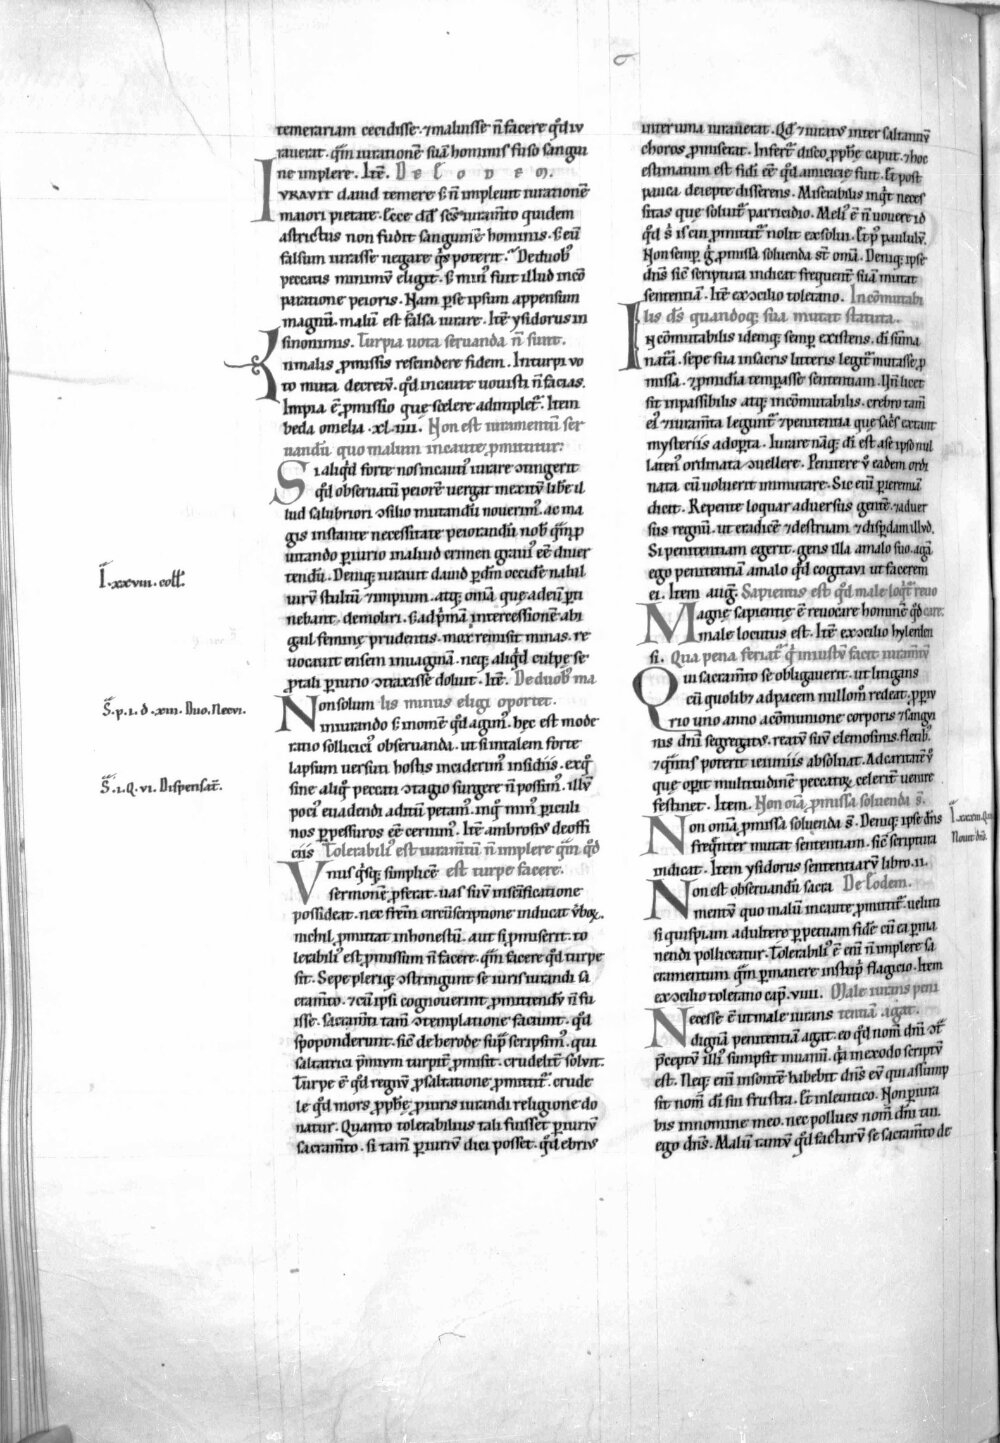 temerariam cecidisse. ⁊ maluisse ñ facere qđ iu
rauerat. qm̄ iurationē suā hominis fuso sangui
ne implere. Itē. De eodem.
Iurauit dauid temere s; ñ impleuit iurationē
maiori pietate. Ecce dd̄ scs̄ iuram̄to quidem
astrictus non fudit sanguinē hominis. s; eū
falsum iurasse negare qis poterit. Deduob;
peccatis minimū eligit. s; min' fuit illud incō
paratione peioris. Nam p̄se ipsum appensum
magnū. malū est falsa iurare. Itē ysidorus in
sinonimis. Turpia uota seruanda ñ sunt.
In malis p̄missis rescindere fidem. In turpi uo
to muta decretū. qđ incaute uouisti ñ facias.
Impia ē p̄missio que scelere adimplet̄. Item
beda omelia .xl.iiii. Non est iuramentū ser
uandū quo malum incaute p̄mittitur:
Si aliqđ forte nos incauti' iurare ɔtingerit
qđ obseruatū peiorē uergat in exitū libe il
lud salubriori ɔsilio mutandū nouerim'. ac ma
gis instante necessitate peiorandū nob' qm̄ p̄
iurando p̄iurio in aliud crimen graui' eē diuer
tendū. Deniq; iurauit dauid p̄ dm̄ occidē nabal
uirū stultū ⁊ impium. atq; omā que ad eū p̄ti
nebant. demoliri. s; ad p̄mā intercessionē abi
gail femine prudentis. mox remisit minas. re
uocauit ensem in uaginā. neq; aliqđ culpe se
p tali p̄iurio ɔtraxisse doluit. Itē. De duob' ma
Non solum lis minus eligi oportet.
in iurando s; in omē qđ agim'. hec est mode
ratio sollicici' obseruanda. ut si in talem forte
lapsum uersuti hostis inciderim' insidiis. ex q̄
sine aliq̄ peccati ɔtagio surgere ñ possim'. illū
poci' euadendi aditū petam'. in q̄ min' piculi
nos p̄pessuros eē cernim'. Itē ambrosi' de offi
ciis Tolerabili' est iuram̄tū ñ implere qm̄ qđ
Vnus q̄sq; simplicē est turpe facere.
sermonē p̄ferat. uas suū in scīficatione
possideat. nec frēm circūscriptione inducat ūboꝝ.
nichil p̄mittat inhonestū. aut si p̄miserit. to
lerabili' est p̄missum ñ facere. qm̄ facere qđ turpe
sit. Sepe pleriq; ɔstringunt se iurisiurandi sa
cram̄to. ⁊ cū ipsi cognouerint p̄mittendū ñ fu
isse. sacram̄ti tam̄ ɔtemplatione faciunt. qđ
spoponderunt. sic̄ de herode sup̄ scripsim'. qui
saltatrici p̄mium turpit̄ p̄misit. crudelit̄ soluit.
Turpe ē qđ regnū p saltatione p̄mittit̄. crude
le qđ mors p̄phē p iuris iurandi religione do
natur. Quanto tolerabilius tali fuisset p̄iuriū
sacram̄to. si tam̄ p̄iuriū dici posset. qđ ebrius
inter uina iurauerat. Qđ euiratus inter saltantiū
choros p̄miserat. Infert̄ disco p̄phē caput. ⁊ hoc
estimatum est fidei eē qđ amicicie fuit. Et post
pauca de iepte disserens. Miserabilis inq̄t neces
sitas que soluit̄ parricidio. Meli' ē ñ uouere id
qđ s; is cui p̄mittit̄ nolit exsolui. Et p' paululū.
Non semp̄ ḡ p̄missa soluenda st̄ omā. Deniq; ipse
dn̄s sic̄ scriptura indicat frequent̄ suā mutat
sententiā. Itē ex ɔcilio toletano. Incōmutabi
lis d̄s quandoq; sua mutat statuta.
Incōmutabilis idemq; semp̄ existens. di' sūma
natā. sepe sua in sacris litteris legit̄ mutasse p̄
missa. ⁊ p̄ mīdia temp̄asse sententiam. Qn̄ licet
sit inpassibilis atq; incōmutabilis. crebro tam̄
ei' ⁊ iuram̄ta legunt̄ ⁊ penitentia que sac̄s extant
mysteriis adopta. Iurare nāq; di' est a se ipso nul
laten' ordinata ɔuellere. Penitere ū eadem ordi
nata cū uoluerit immutare. Sic eni p̄ ieremiā
dicit. Repente loquar aduersus gentē. ⁊ aduer
sus regnū. ut eradicē ⁊ destruam ⁊ disp̄dam illud.
Si penitentiam egerit. gens illa a malo suo. agā
ego penitentiā a malo qđ cogitaui ut facerem
ei. Item aug. Sapientis est qđ male loq̄t̄ reuo
Magnę sapientię ē reuocare hominē qđ care.
male locutus est. Itē ex ɔcilio hylerden
si. Qua pena feriat̄ q̄ iniustū facit iuram̄tū
Qui sacram̄to se obligauerit. ut litigans
cū quolib; ad pacem nullom̄ redeat. p̄ p̄iu
rio uno anno a cōmunione corporis ⁊ sangui
nis dn̄i segregatus. reatū suū elemosinis. fletib;
⁊ q̄ntis poterit ieiuniis absoluat. Ad caritatē ū
que opit multitudinē peccatoꝝ celerit̄ uenire
festinet. Item. Non oīā p̄missa soluenda s̄.
Non omā p̄missa soluenda s̄. Deniq; ipse dn̄s
freq̄nter mutat sententiam. sic̄ scriptura
indicat. Item ysidorus sententiarū libro .ii.
Non est obseruandū sacra De Eodem.
mentū quo malū incaute p̄mittit̄. ueluti
si quispiam adultere p̄petuam fidē cū ea p̄ma
nendi polliceatur. Tolerabili' ē eni ñ implere sa
cramentum qm̄ p̄manere in stup̄ flagicio. Item
ex ɔcilio toletano cap̄. viiii. Male iurans peni
Necesse ē ut male iurans tentiā agat.
dignā penitentiā agat. eo qđ nom̄ dn̄i ɔt̄
p̄ceptū illi' sumpsit in uanū. q̄a in exodo scriptū
est. Neq; eni insontē habebit dn̄s eū qui assump
sit nom̄ di' sui frustra. Et in leuitico. Non p̄iura
bis in nomine meo. nec pollues nom̄ dn̄i tui.
ego dn̄s. Malū tantū qđ facturū se sacram̄to de
I. xxviii. coll'.
S. p. i. d. xiii. Duo. Necui.
S. i. Q. vi. Dispensat̄.